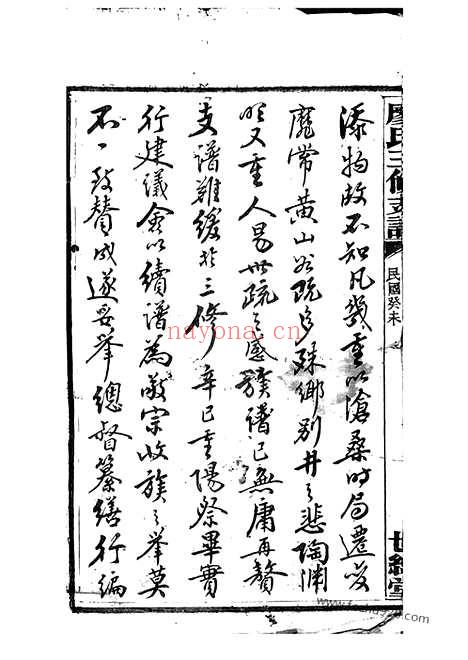 廖氏三修支譜
民國癸未
世綵堂
添物故不知凡幾重以滄桑時局遷
龐常黄山谷既多殊鄉別井之悲陶淵
明又重人易世疏之感族譜已無庸再贅
支譜難緩於三修辛巳重陽祭畢實
行建議僉以續譜為敬宗收族之舉莫
不一致贊成遂妥舉總督纂繕行編
nayona.cn